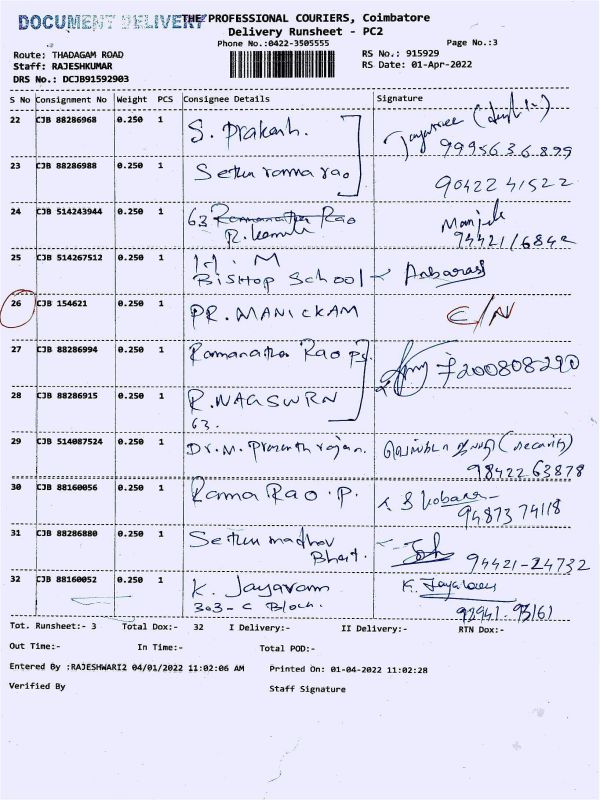 DOCUMENT DELIVERY THE PROFESSIONAL COURIERS, Coimbatore
Delivery Runsheet - PC2
Phone No.:0422-3505555 Page No.:3
Route: THADAGAM ROAD RS No.: 915929
Staff: RAJESHKUMAR RS Date: 01-Apr-2022
DRS No.: DCJB91592903
S No Consignment No Weight PCS Consignee Details Signature
22 CJB 88286968 0.250 1 S. Prakash.
9995636899
23 CJB 88286988 0.250 1 Sethu rama rao 90422 41522
24 CJB 514243944 0.250 1 63 Ramanatha Rao Manjula
R. 94421 16842
25 CJB 514267512 0.250 1 H. M
BISHOP School Anbarasi
26 CJB 154621 0.250 1 PR. MANICKAM C/N
27 CJB 88286994 0.250 1 Ramanatha Rao PS. 7200808290
28 CJB 88286915 0.250 1 R. NAGSWRN
63.
29 CJB 514087524 0.250 1 Dr. M. Prasanth rajan. (security)
98422 63878
30 CJB 88160056 0.250 1 Rama Rao. P.
94873 74118
31 CJB 88286880 0.250 1 Sethu madhav
Bhat. 94421-24732
32 CJB 88160052 0.250 1 K. Jayaram K. Jayaram
303- C Block. 92941-93161
Tot. Runsheet:- 3 Total Dox:- 32 I Delivery:- II Delivery:- RTN Dox:-
Out Time:- In Time:- Total POD:-
Entered By :RAJESHWARI2 04/01/2022 11:02:06 AM Printed On: 01-04-2022 11:02:28
Verified By Staff Signature